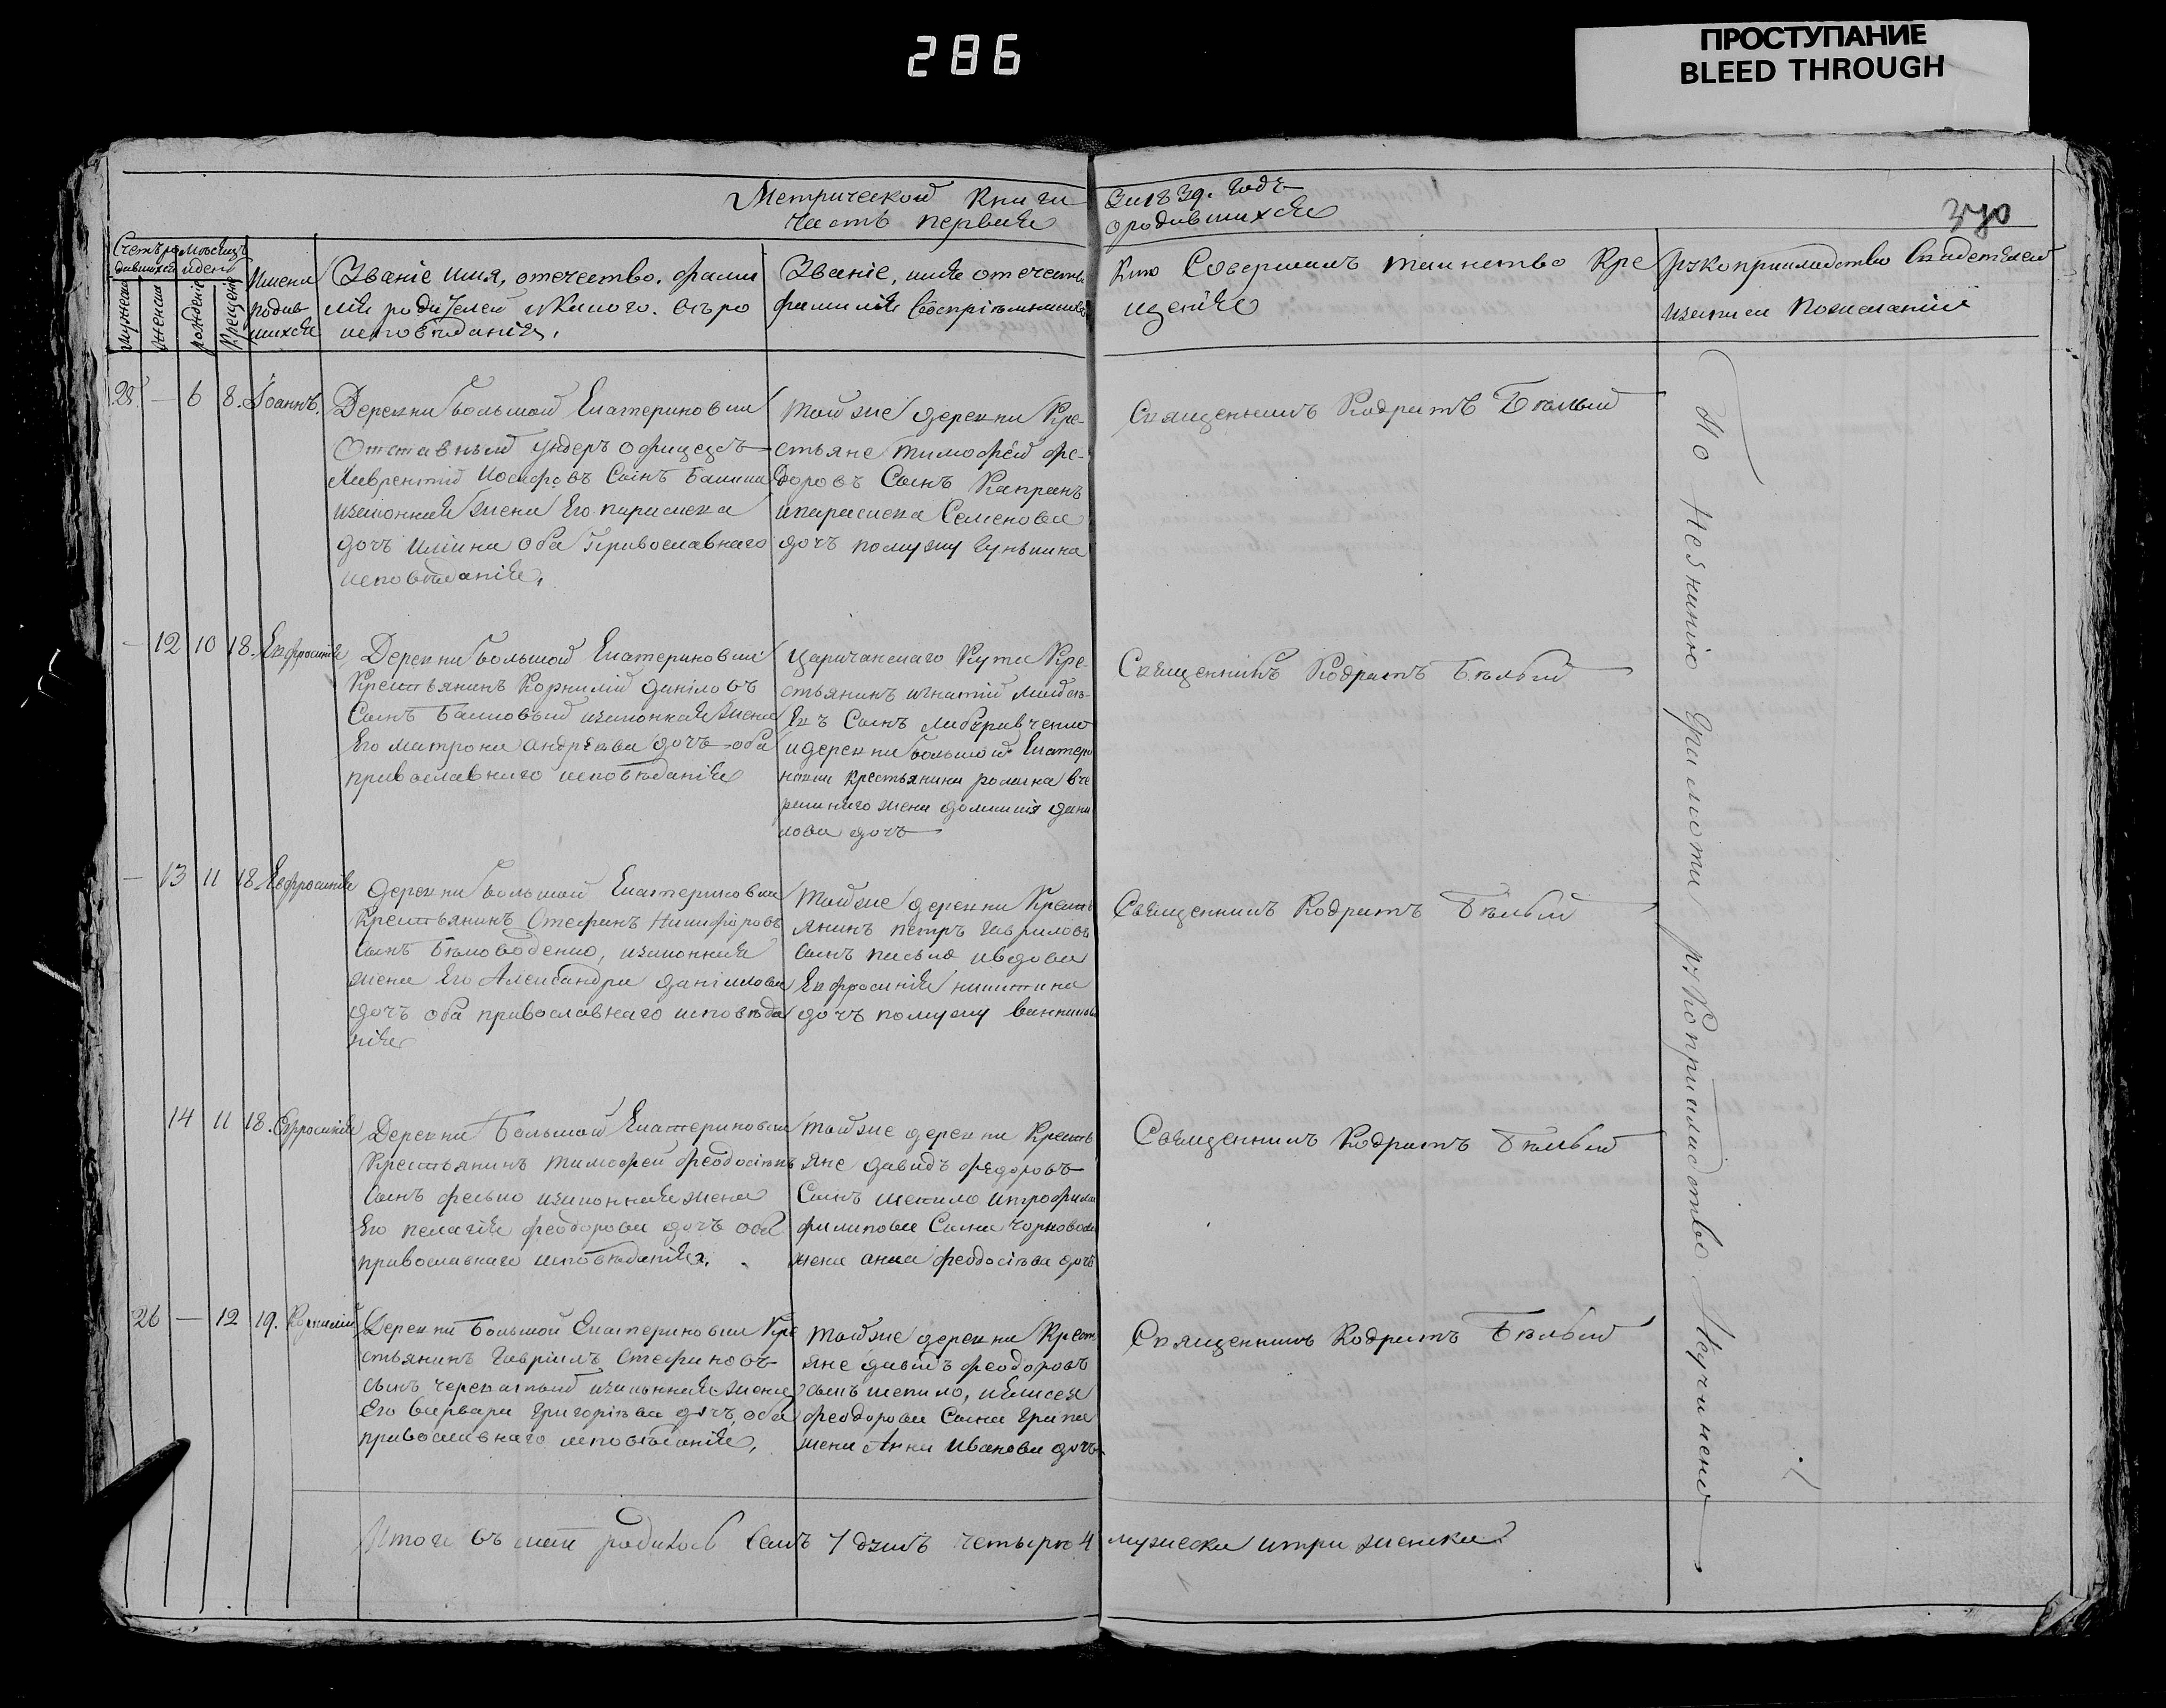 286
ПРОСТУПАНИЕ
BLEED THROUGH
Метрической Книги
часть первая
За 1839. годъ
ородившихся
370
Счетъ ро
дившихся
Мѣсяцъ
идень
мужеска
женска
рожденіе
Крещенія
Имена
родив
шихся
Званіе имя, отечество, фами
лія родителей икакого. вѣро
исповѣданія,
Званіе, имя отечество
фамилія Воспріемниковъ
Кто Совершалъ таинство Кре
щенія
рукоприкладство Свидетелей
записи пожеланію
28. — 6 8. Іоаннъ.
Деревни большой Екатериновки
Отставный ундеръ офицеръ
Лаврентій Іосифовъ Сынъ
изаконная жена Его параскева
дочъ обa Православнаго
исповѣданія,
той же деревни Кре-
стьяне тимофей фе-
доровъ Сынъ Капранъ
ипараскева Семенова
дочъ помужу
Священникъ Кодратъ Бѣлый
— 12 10 18. Евфросинія
Деревни большой Екатериновки
Крестьянинъ Корнилій даніловъ
Сынъ изаконная жена
Его матрона андрѣева дочъ оба
православнаго исповѣданія
Царичанскаго Кута Кре-
стьянинъ игнатій
Сынъ
идеревни большой Екатери
новки крестьянина романа
жена дани
лова дочъ
Священникъ Кодратъ Бѣлый
— 13 11 18. Евфросинія
деревни большой Екатериновки
Крестьянинъ Стефанъ Никифоровъ
Сынъ Бѣловоденко, изаконная
жена Его Александра даніилова
дочъ оба православнаго исповѣда
нія
той же деревни Кресть
янинъ петръ гавриловъ
Сынъ ивдова
Евфросинія никитина
дочъ помужу
Священникъ Кодратъ Бѣлый
14 11 18. Евфросинія
Деревни Большой Екатериновки
Крестьянинъ тимофей феодосіевъ
Сынъ изаконная жена
Его пелагія феодорова дочъ оба
православнаго исповѣданія.
той же деревни Кресть
яне давидъ федоровъ
Сынъ шепило итрофима
филипова Сына
жена анна феодосіева дочъ
Священникъ Кодратъ Бѣлый
26 — 12 19. Корнилій
Деревни Большой Екатериновки Кре
стьянинъ гавріилъ Стефановъ
сынъ изаконная жена
Его варвара григоріева дочъ, оба
православнаго исповѣданія,
той же деревни Крест
яне давидъ феодоровъ
сынъ шепило, иелисея
феодорова Сына
жена Анна Иванова дочъ
Священникъ Кодратъ Бѣлый
По Незнанию грамоти рукоприкладство Неучинено
Итого въ маи 7 четыри 4 мужеска итри женска